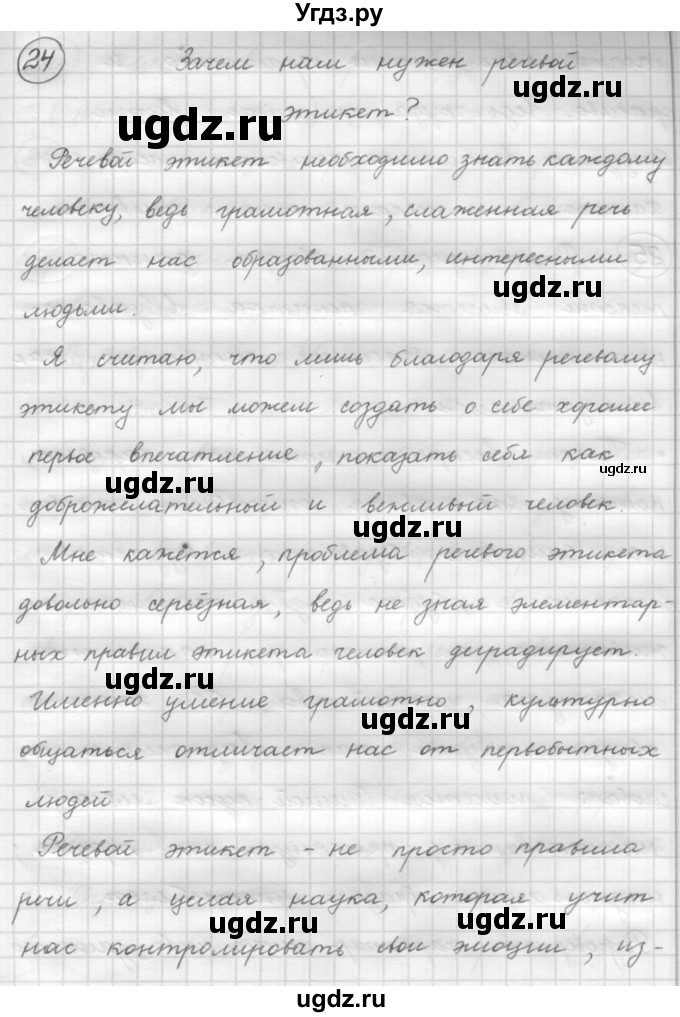 Угдз.ру
24 Зачем нам нужен речевой
ugdz.ru
ugdz.ru
этикет?
Речевой этикет необходимо знать каждому
человеку, ведь грамотная, слаженная речь
ugdz.ru
делает нас образованными, интересными
ugdz.ru
людьми.
Я считаю, что лишь благодаря речевому
этикету мы можем создать о себе хорошее
первое впечатление, показать себя как
ugdz.ru
ugdz.ru
доброжелательный и вежливый человек.
ugdz.ru
Мне кажется, проблема речевого этикета
довольно серьёзная, ведь не зная элементар-
ных правил этикета человек деградирует.
ugdz.ru
Именно умение грамотно, культурно
ugdz.ru
общаться отличает нас от первобытных
людей
Речевой этикет - не просто правила
речи, а целая наука, которая учит
ugdz.ru
ugdz.ru
нас контролировать свои эмоции, из-
ugdz.ru